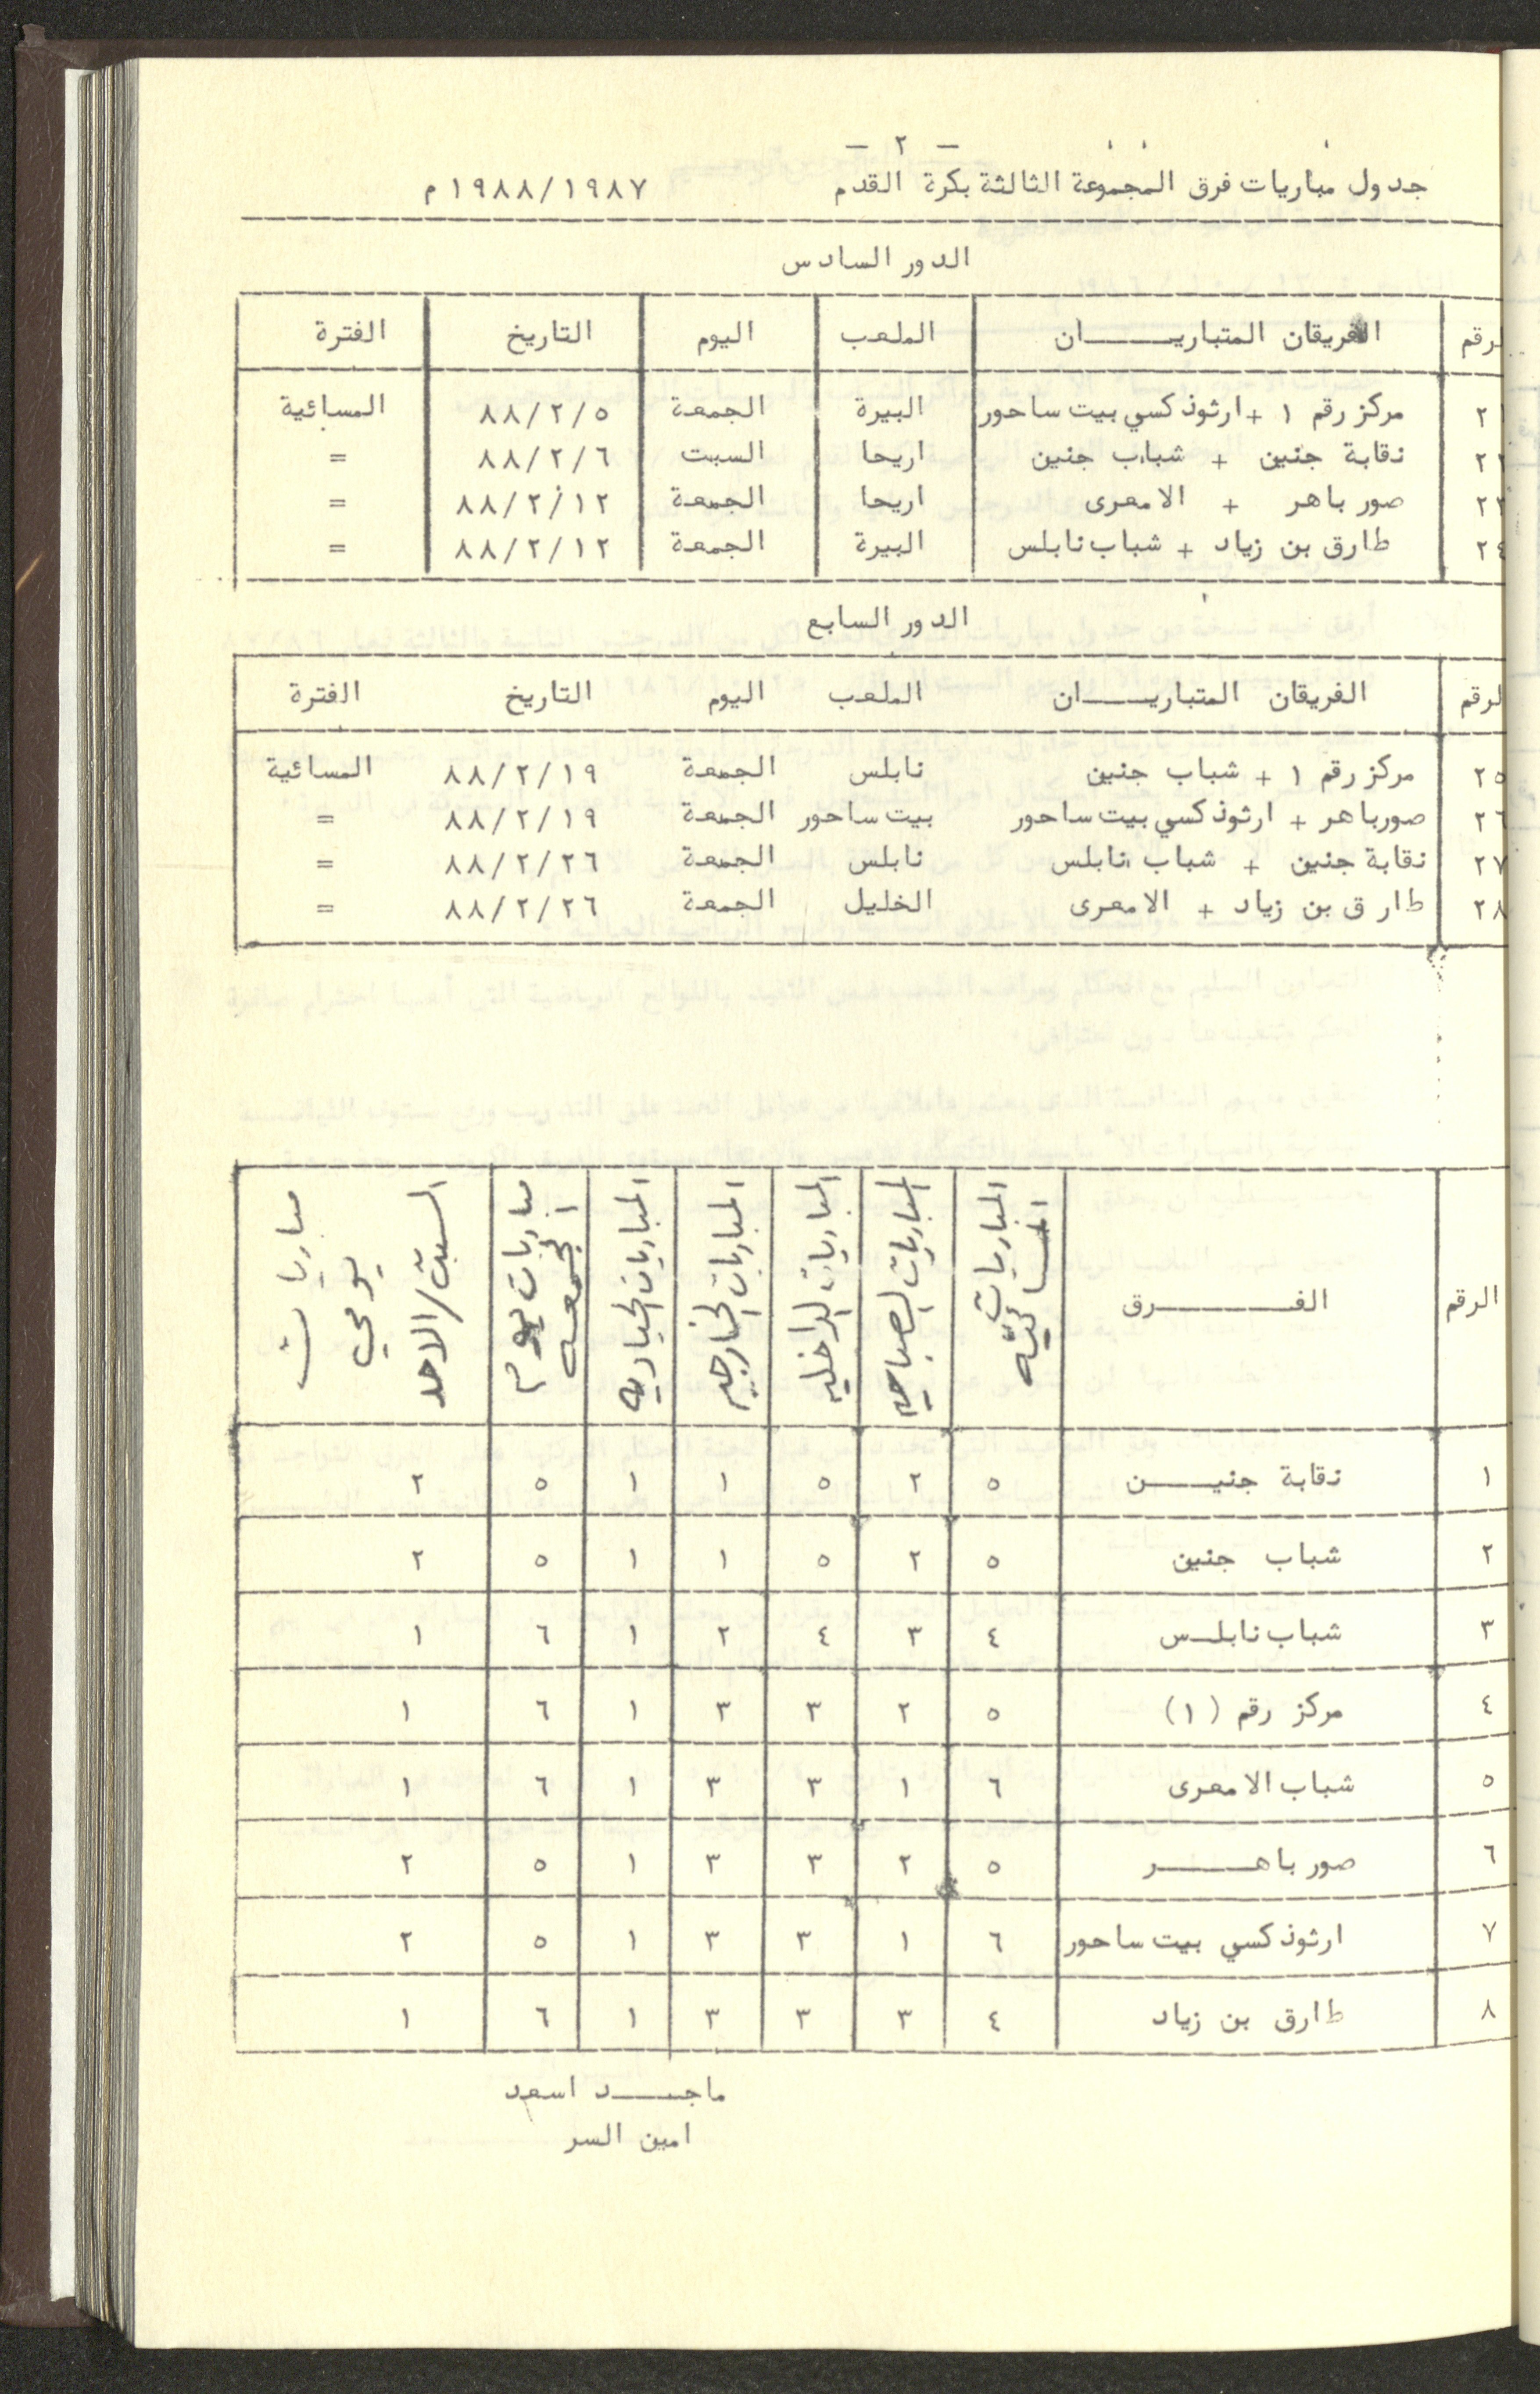 - ٢ -
جدول مباريات فرق المجموعة الثالثة بكرة القدم ١٩٨٨/١٩٨٧م
الدور السادس
لرقم الفريقان المتباريـــان الملعب اليوم التاريخ الفترة
٢١ مركز رقم ١ + ارثوذكسي بيت ساحور البيرة الجمعة ٨٨/٢/٥ المسائية
٢٢ نقابة جنين + شباب جنين اريحا السبت ٨٨/٢/٦ =
٢٣ صور باهر + الامعرى اريحا الجمعة ٨٨/٢/١٢ =
٢٤ طارق بن زياد + شباب نابلس البيرة الجمعة ٨٨/٢/١٢ =
الدور السابع
لرقم الفريقان المتباريـــان الملعب اليوم التاريخ الفترة
٢٥ مركز رقم ١ + شباب جنين نابلس الجمعة ٨٨/٢/١٩ المسائية
٢٦ صورباهر + ارثوذكسي بيت ساحور بيت ساحور الجمعة ٨٨/٢/١٩ =
٢٧ نقابة جنين + شباب نابلس نابلس الجمعة ٨٨/٢/٢٦ =
٢٨ طارق بن زياد + الامعرى الخليل الجمعة ٨٨/٢/٢٦ =
الرقم الفـــــرق المباريات المسائيه المباريات الصباحيه المباريات الداخليه المباريات الخارجيه المباريات الحياديه مباريات يوم الجمعه مباريات يومي السبت/الاحد
١ نقابة جنيـــن ٥ ٢ ٥ ١ ١ ٥ ٢
٢ شباب جنين ٥ ٢ ٥ ١ ١ ٥ ٢
٣ شباب نابلـس ٤ ٣ ٤ ٢ ١ ٦ ١
٤ مركز رقم (١) ٥ ٢ ٣ ٣ ١ ٦ ١
٥ شباب الامعرى ٦ ١ ٣ ٣ ١ ٦ ١
٦ صور باهـــــر ٥ ٢ ٣ ٣ ١ ٥ ٢
٧ ارثوذكسي بيت ساحور ٦ ١ ٣ ٣ ١ ٥ ٢
٨ طارق بن زياد ٤ ٣ ٣ ٣ ١ ٦ ١
ماجــــد اسعد
امين السر